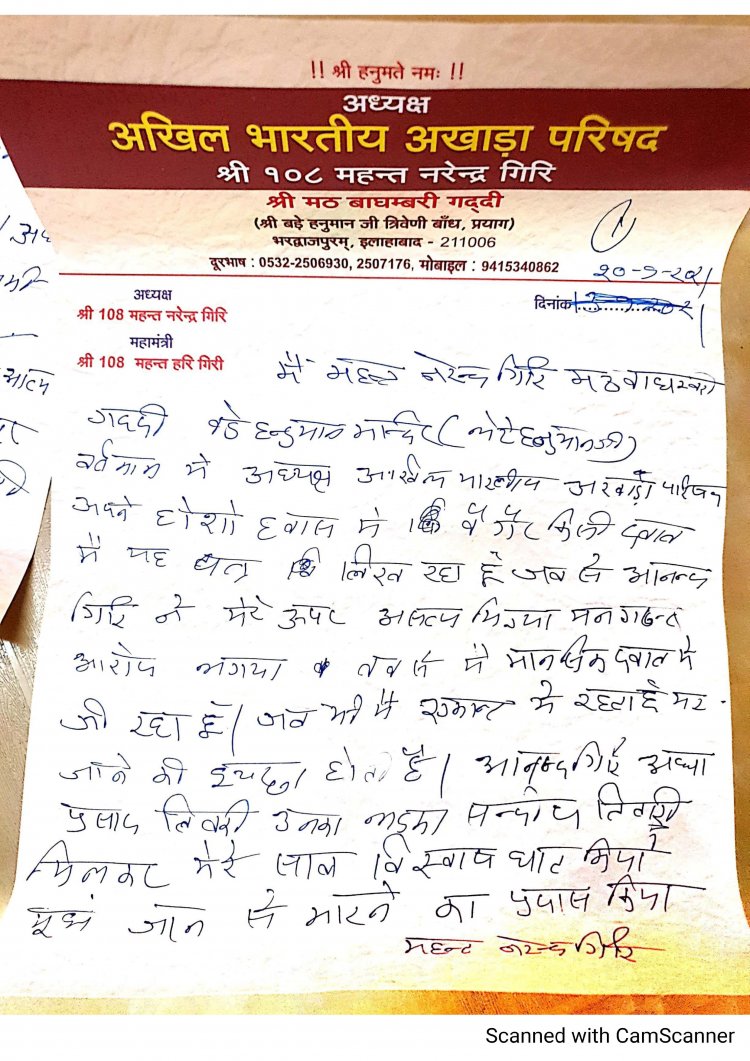 !! श्री हनुमते नमः !!
अध्यक्ष
अखिल भारतीय अखाड़ा परिषद
श्री १०८ महन्त नरेन्द्र गिरि
श्री मठ बाघम्बरी गद्दी
(श्री बड़े हनुमान जी त्रिवेणी बाँध, प्रयाग)
भरद्वाजपुरम्, इलाहाबाद - 211006
दूरभाष : 0532-2506930, 2507176, मोबाइल : 9415340862
1
दिनांक
अध्यक्ष
श्री 108 महन्त नरेन्द्र गिरि
महामंत्री
श्री 108 महन्त हरि गिरी
मैं महन्त नरेन्द्र गिरि मठ बाघम्बरी
गद्दी बडे हनुमान मन्दिर (लेटे हनुमानजी)
वर्तमान मे अध्यक्ष अखिल भारतीय अखाड़ा परिषद
अपने होशो हवास मे बिना किसी दबाव
मै यह पत्र लिख रहा हूँ जब से आनन्द
गिरि ने मेरे ऊपर असत्य मिथ्या मनगढन्त
आरोप लगाया तब से मै मानसिक दबाव मे
जी रहा हूँ। जब भी मै एकान्त मे रहता हूँ मर
जाने की इच्छा होती है। आनन्द गिरि अध्या
प्रसाद तिवारी उनका लड़का सन्दीप तिवारी
मिलकर मेरे साथ विश्वास घात किया
मुझे जान से मारने का प्रयास किया
महन्त नरेन्द्र गिरि
Scanned with CamScanner